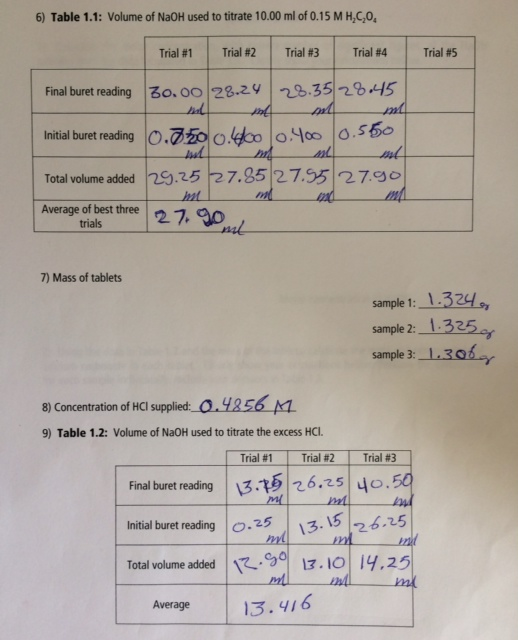 6) Table 1.1: Volume of NaOH used to titrate 10.00 ml of 0.15 M H₂C₂O₄
Trial #1 Trial #2 Trial #3 Trial #4 Trial #5
Final buret reading 30.00 ml 28.24 ml 28.35 ml 28.45 ml
Initial buret reading 0.750 ml 0.400 ml 0.400 ml 0.550 ml
Total volume added 29.25 ml 27.85 ml 27.95 ml 27.90 ml
Average of best three trials 27.90 ml
7) Mass of tablets
sample 1: 1.324 g
sample 2: 1.325 g
sample 3: 1.306 g
8) Concentration of HCl supplied: 0.4856 M
9) Table 1.2: Volume of NaOH used to titrate the excess HCl.
Trial #1 Trial #2 Trial #3
Final buret reading 13.15 ml 26.25 ml 40.50 ml
Initial buret reading 0.25 ml 13.15 ml 26.25 ml
Total volume added 12.90 ml 13.10 ml 14.25 ml
Average 13.416